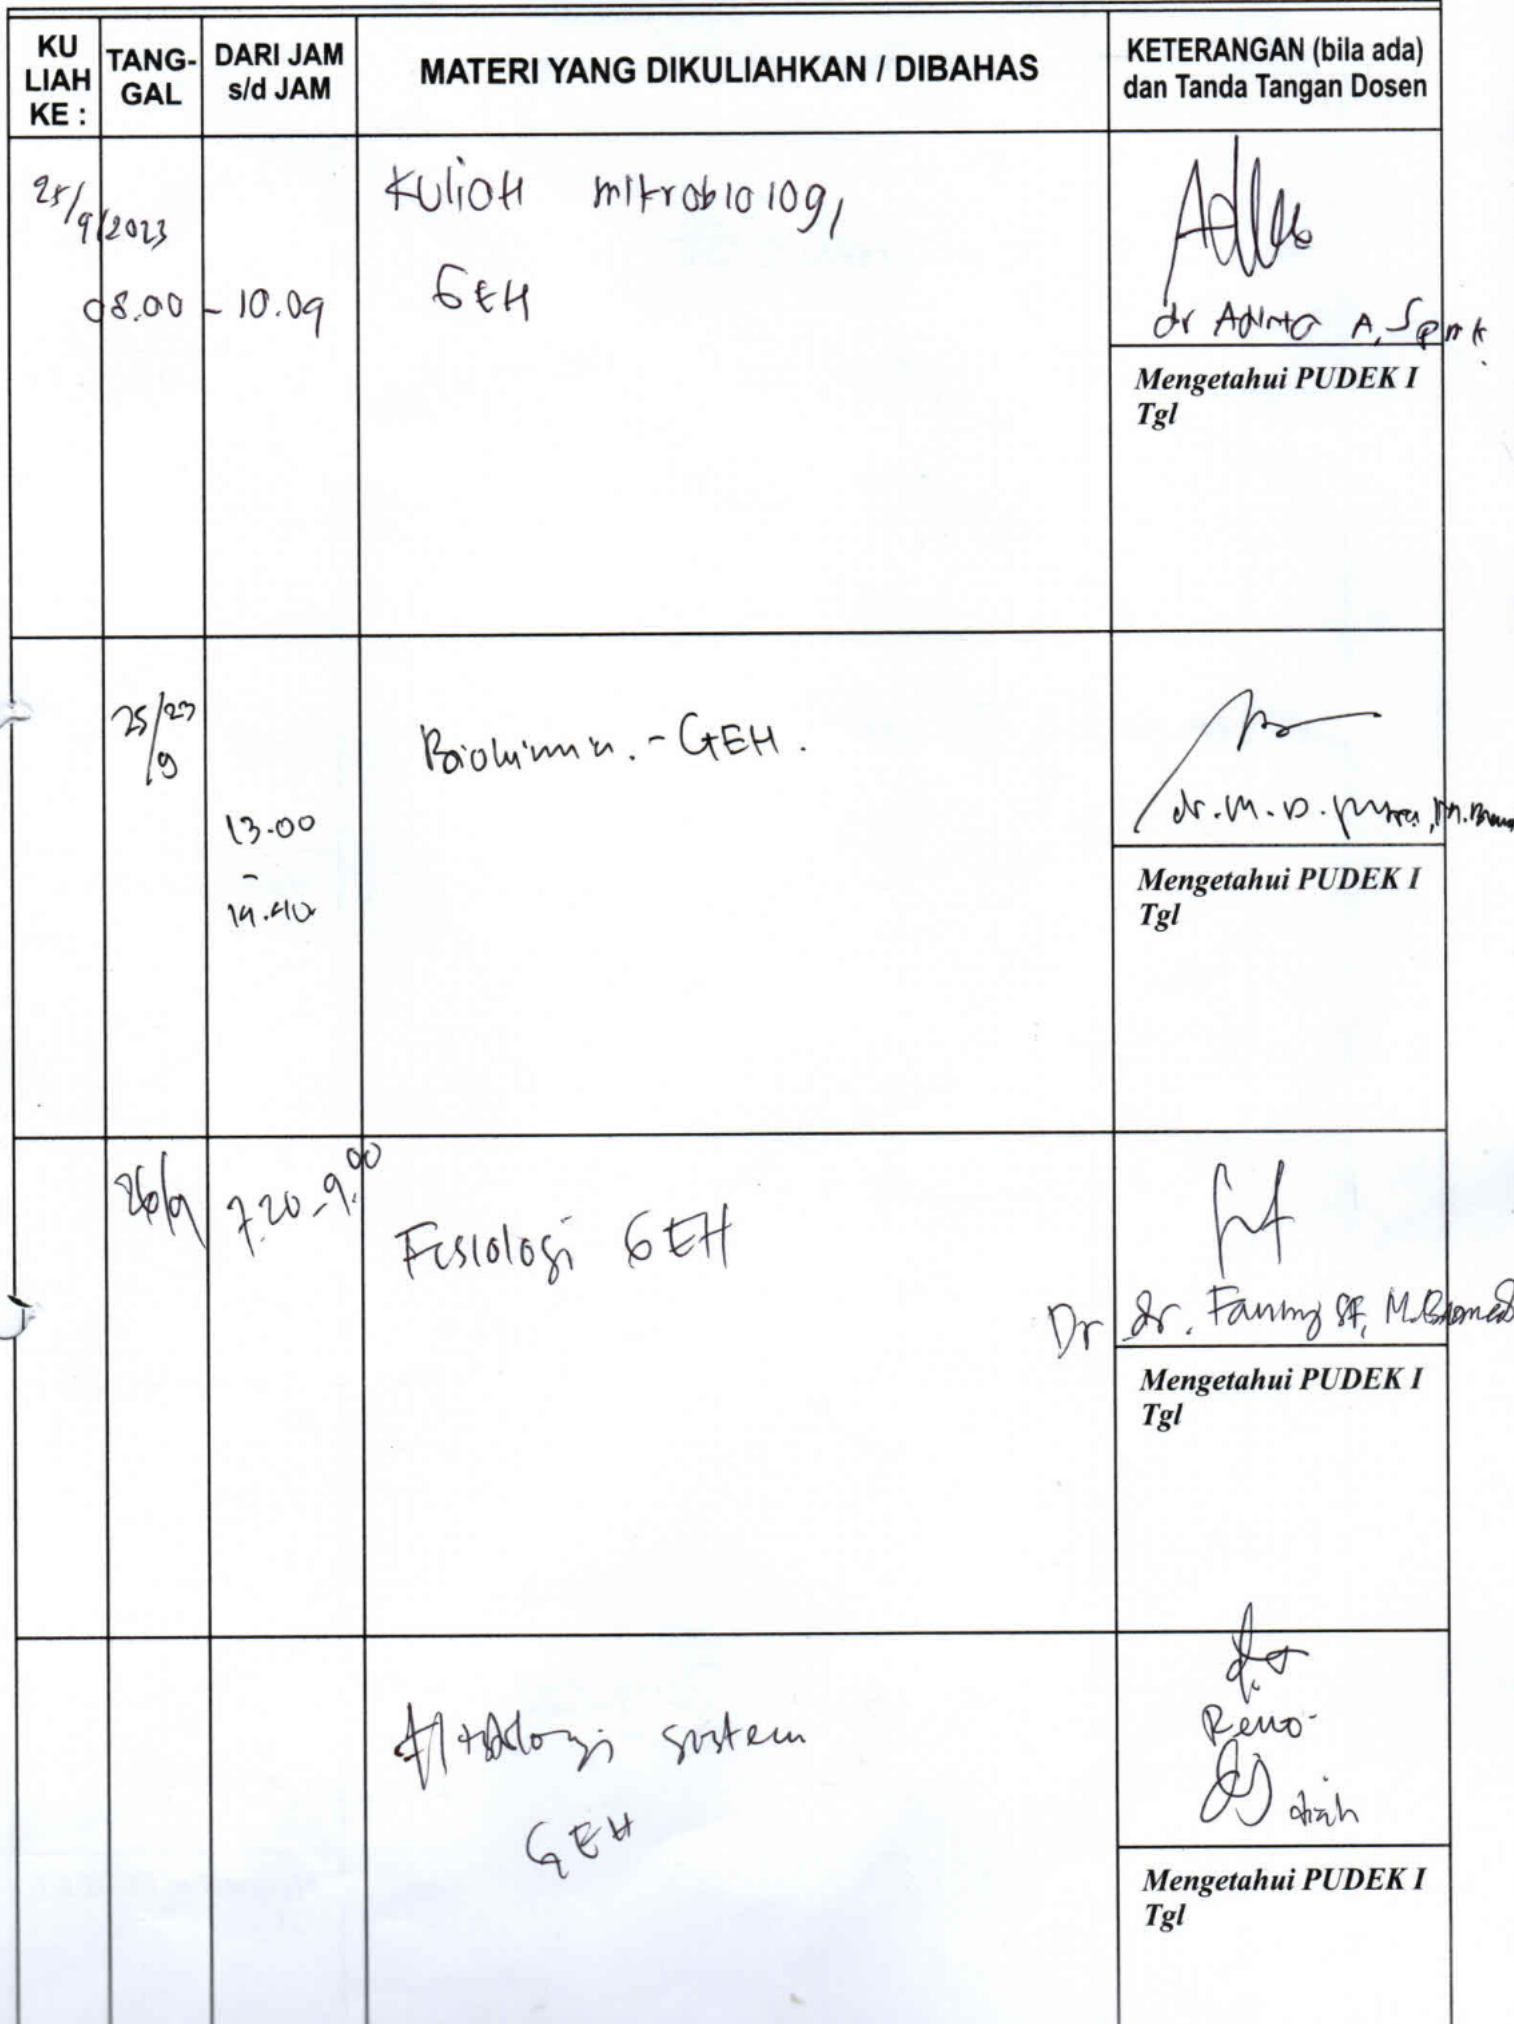 KU LIAH KE :
TANG-GAL
DARI JAM s/d JAM
MATERI YANG DIKULIAHKAN / DIBAHAS
KETERANGAN (bila ada)
dan Tanda Tangan Dosen
25/9/2023
08.00 - 10.09
Kuliah mikrobiologi
GEH
dr A, SpMK
Mengetahui PUDEK I
Tgl
25/23
/9
13.00
-
14.40
Biokimia. - GEH.
dr. M. D.
Mengetahui PUDEK I
Tgl
26/9
7.20 - 9.00
Fisiologi GEH
Dr dr. Fanny SF, M.Biomed
Mengetahui PUDEK I
Tgl
sistem
GEH
Reno
diah
Mengetahui PUDEK I
Tgl